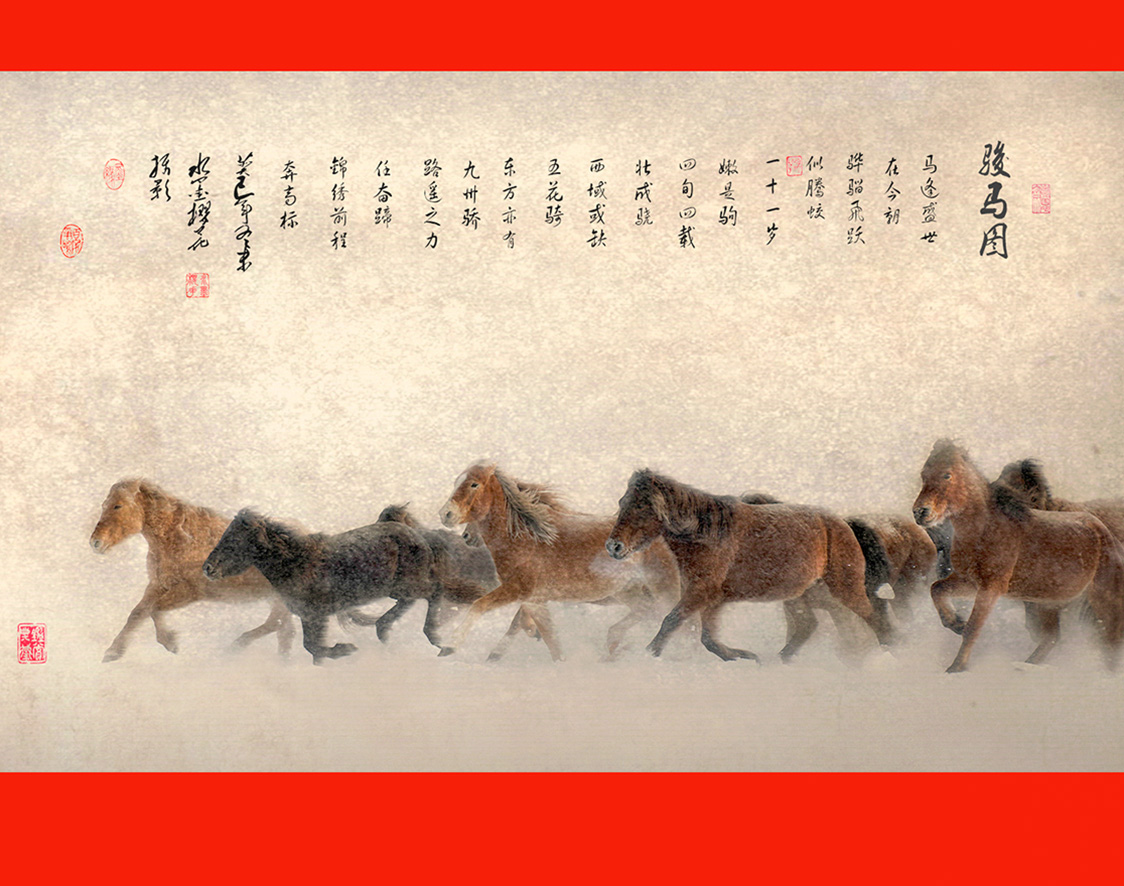 骏马图
马逢盛世
在今朝
骅骝飛跃
似腾蛟
一十一岁
嫩是驹
四旬四载
壮成骁
西域或缺
五花骑
东方亦有
九州骄
路遥之力
任奋蹄
锦绣前程
奔高标
水墨樱花
摄影